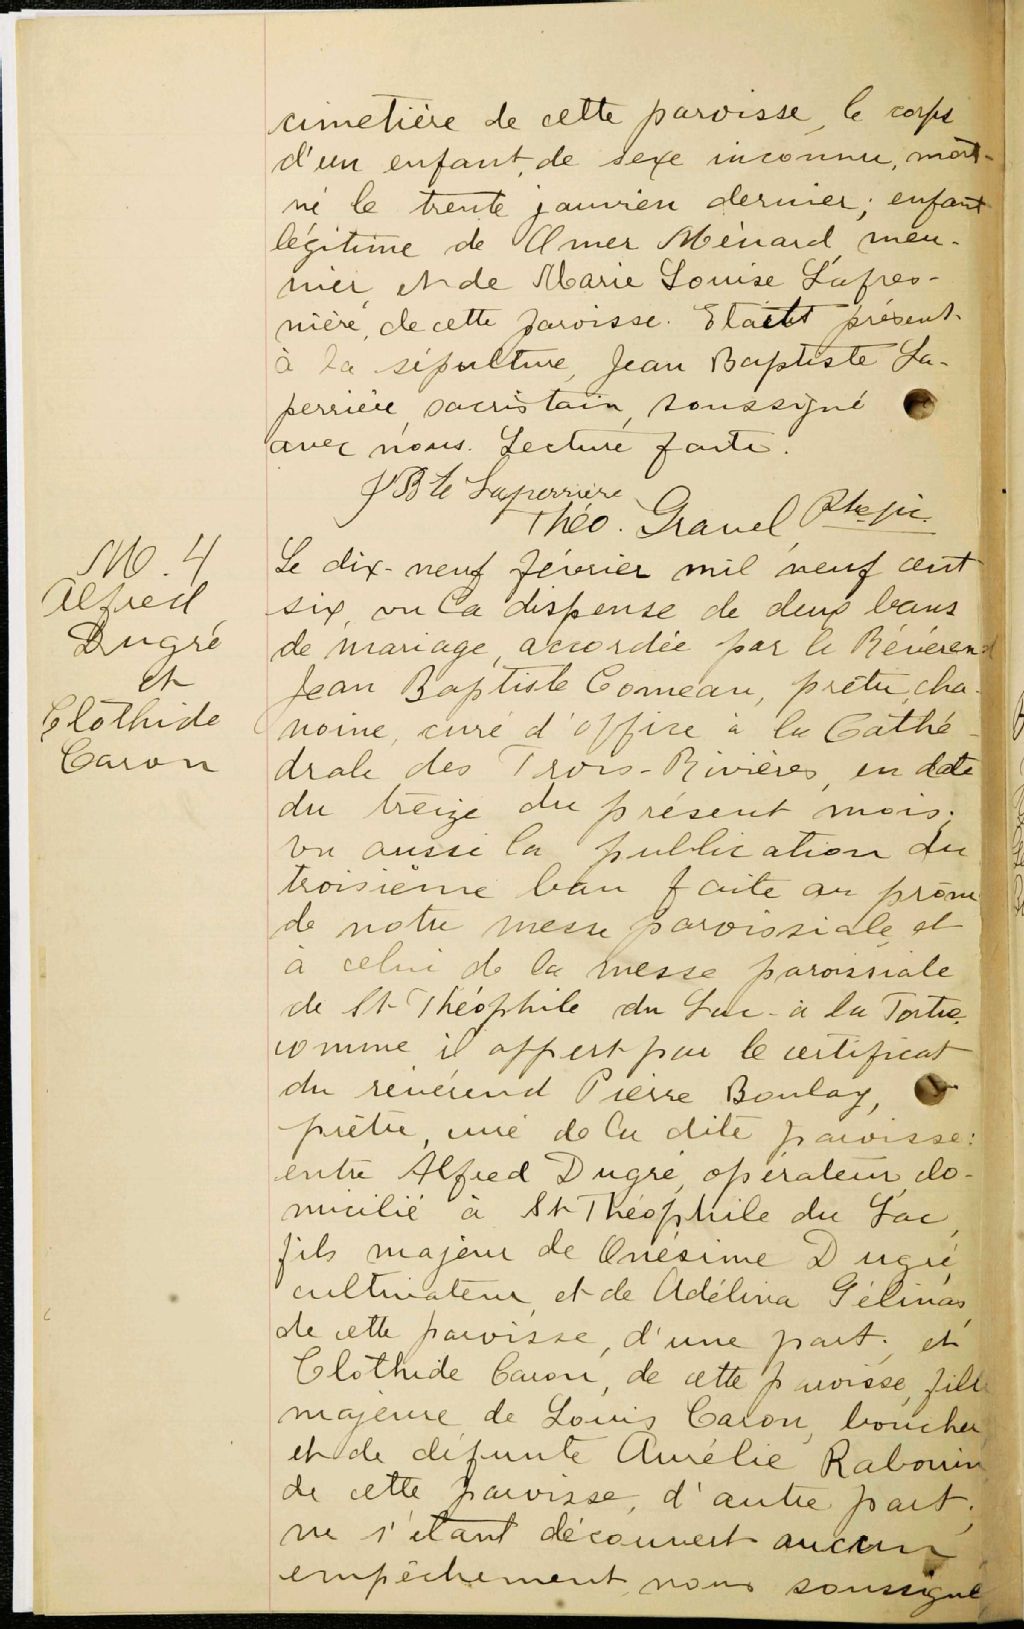 cimetière de cette paroisse, le corps
d'un enfant, de sexe inconnu, mort-
né le trente janvier dernier; enfant
légitime de Omer Ménard, meu-
nier, et de Marie Louise Lafres-
nière, de cette paroisse. Etait présent
à la sépulture, Jean Baptiste La-
perrière, sacristain, soussigné
avec nous. Lecture faite.
J Bte Laperrière
Théo. Gravel, Ptre
M. 4
Alfred
Dugré
et
Clothide
Caron
Le dix-neuf février mil neuf cent
six, vu la dispense de deux bans
de mariage, accordée par le Révérend
Jean Baptiste Comeau, prêtre, cha-
noine, curé d'office à la Cathé-
drale des Trois-Rivières, en date
du treize du présent mois;
vu aussi la publication du
troisième ban faite au prône
de notre messe paroissiale et
à celui de la messe paroissiale
de St Théophile du Lac-à la Tortue
comme il appert par le certificat
du révérend Pierre Boulay,
prêtre, curé de la dite paroisse:
entre Alfred Dugré, opérateur, do-
micilié à St Théophile du Lac,
fils majeur de Onésime Dugré,
cultivateur, et de Adélina Gélinas,
de cette paroisse, d'une part; et
Clothide Caron, de cette paroisse, fille
majeure de Louis Caron, boucher,
et de défunte Aurélie Rabouin
de cette paroisse, d'autre part;
ne s'étant découvert aucun
empêchement, nous soussigné